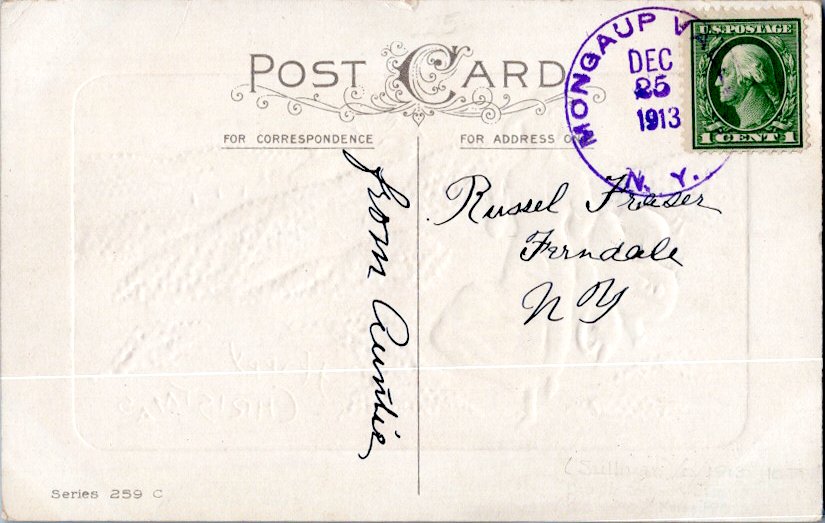 POST CARD
FOR CORRESPONDENCE
FOR ADDRESS
MONGAUP
DEC
25
1913
N. Y.
U.S. POSTAGE
1 CENT 1
from Auntie
Russel Fraser
Ferndale
N Y
CHRISTMAS
Series 259 C
1913